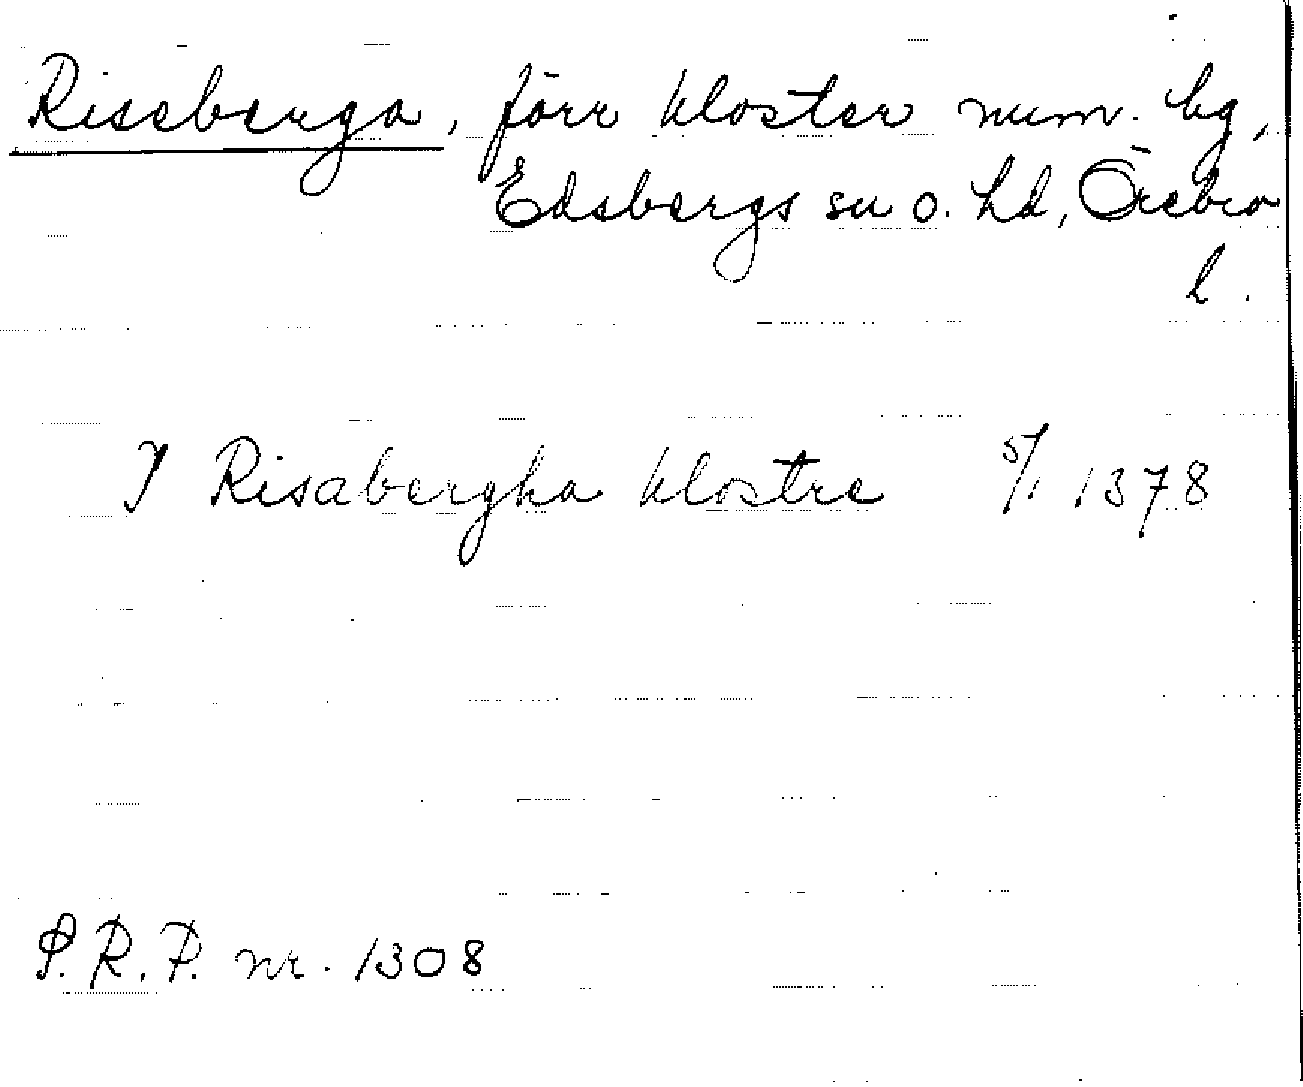 Riseberga, förr kloster num. by,
Edsbergs sn o. hd, Örebro
l.
J Risabergha klostre 5/1 1378
S.R.P. nr. 1308